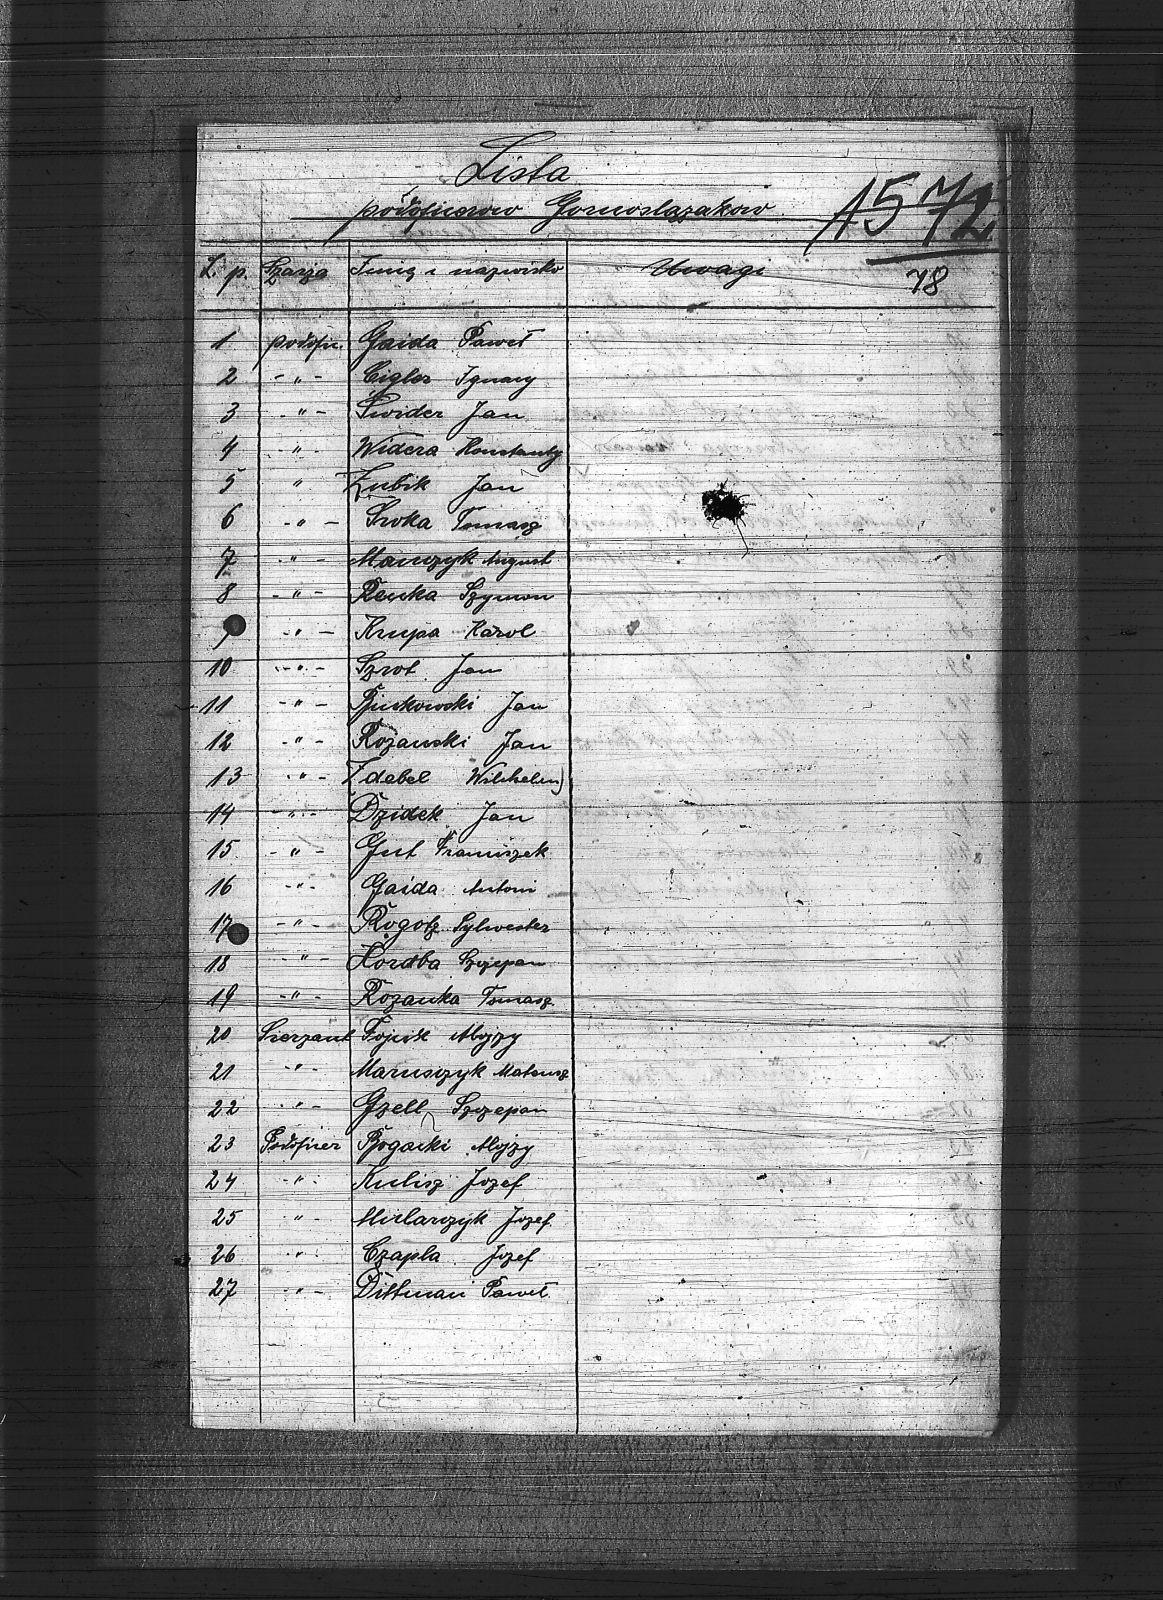 Lista
podoficerow Gornoslązakow
1572
78
L. p. Szarża Imię i nazwisko Uwagi
1 podofic. Gaida Paweł
2 -"- Cigler Ignacy
3 -"- Świder Jan
4 -"- Widera Konstanty
5 " Zubik Jan
6 -"- Sroka Tomasz
7 -"- Manczyk August
8 -"- Reucka Szymon
9 -"- Krupa Karol
10 -"- Szrot Jan
11 -"- Jan
12 -"- Rożanski Jan
13 -"- Zdebel Wilchelm
14 -"- Dzidek Jan
15 -"- Gut Franciszek
16 -"- Gaida Antoni
17 -"- Rogotz Sylwester
18 -"- Kordba Szczepan
19 -"- Rozanka Tomasz
20 Sierzant Fojcik Alojzy
21 -"- Marusczyk Mateusz
22 -"- Gzell Szczepan
23 Podoficer Bogacki Alojzy
24 -"- Kulisz Jozef
25 -"- Mielarczyk Jozef
26 -"- Czapla Jozef
27 -"- Dittman Paweł